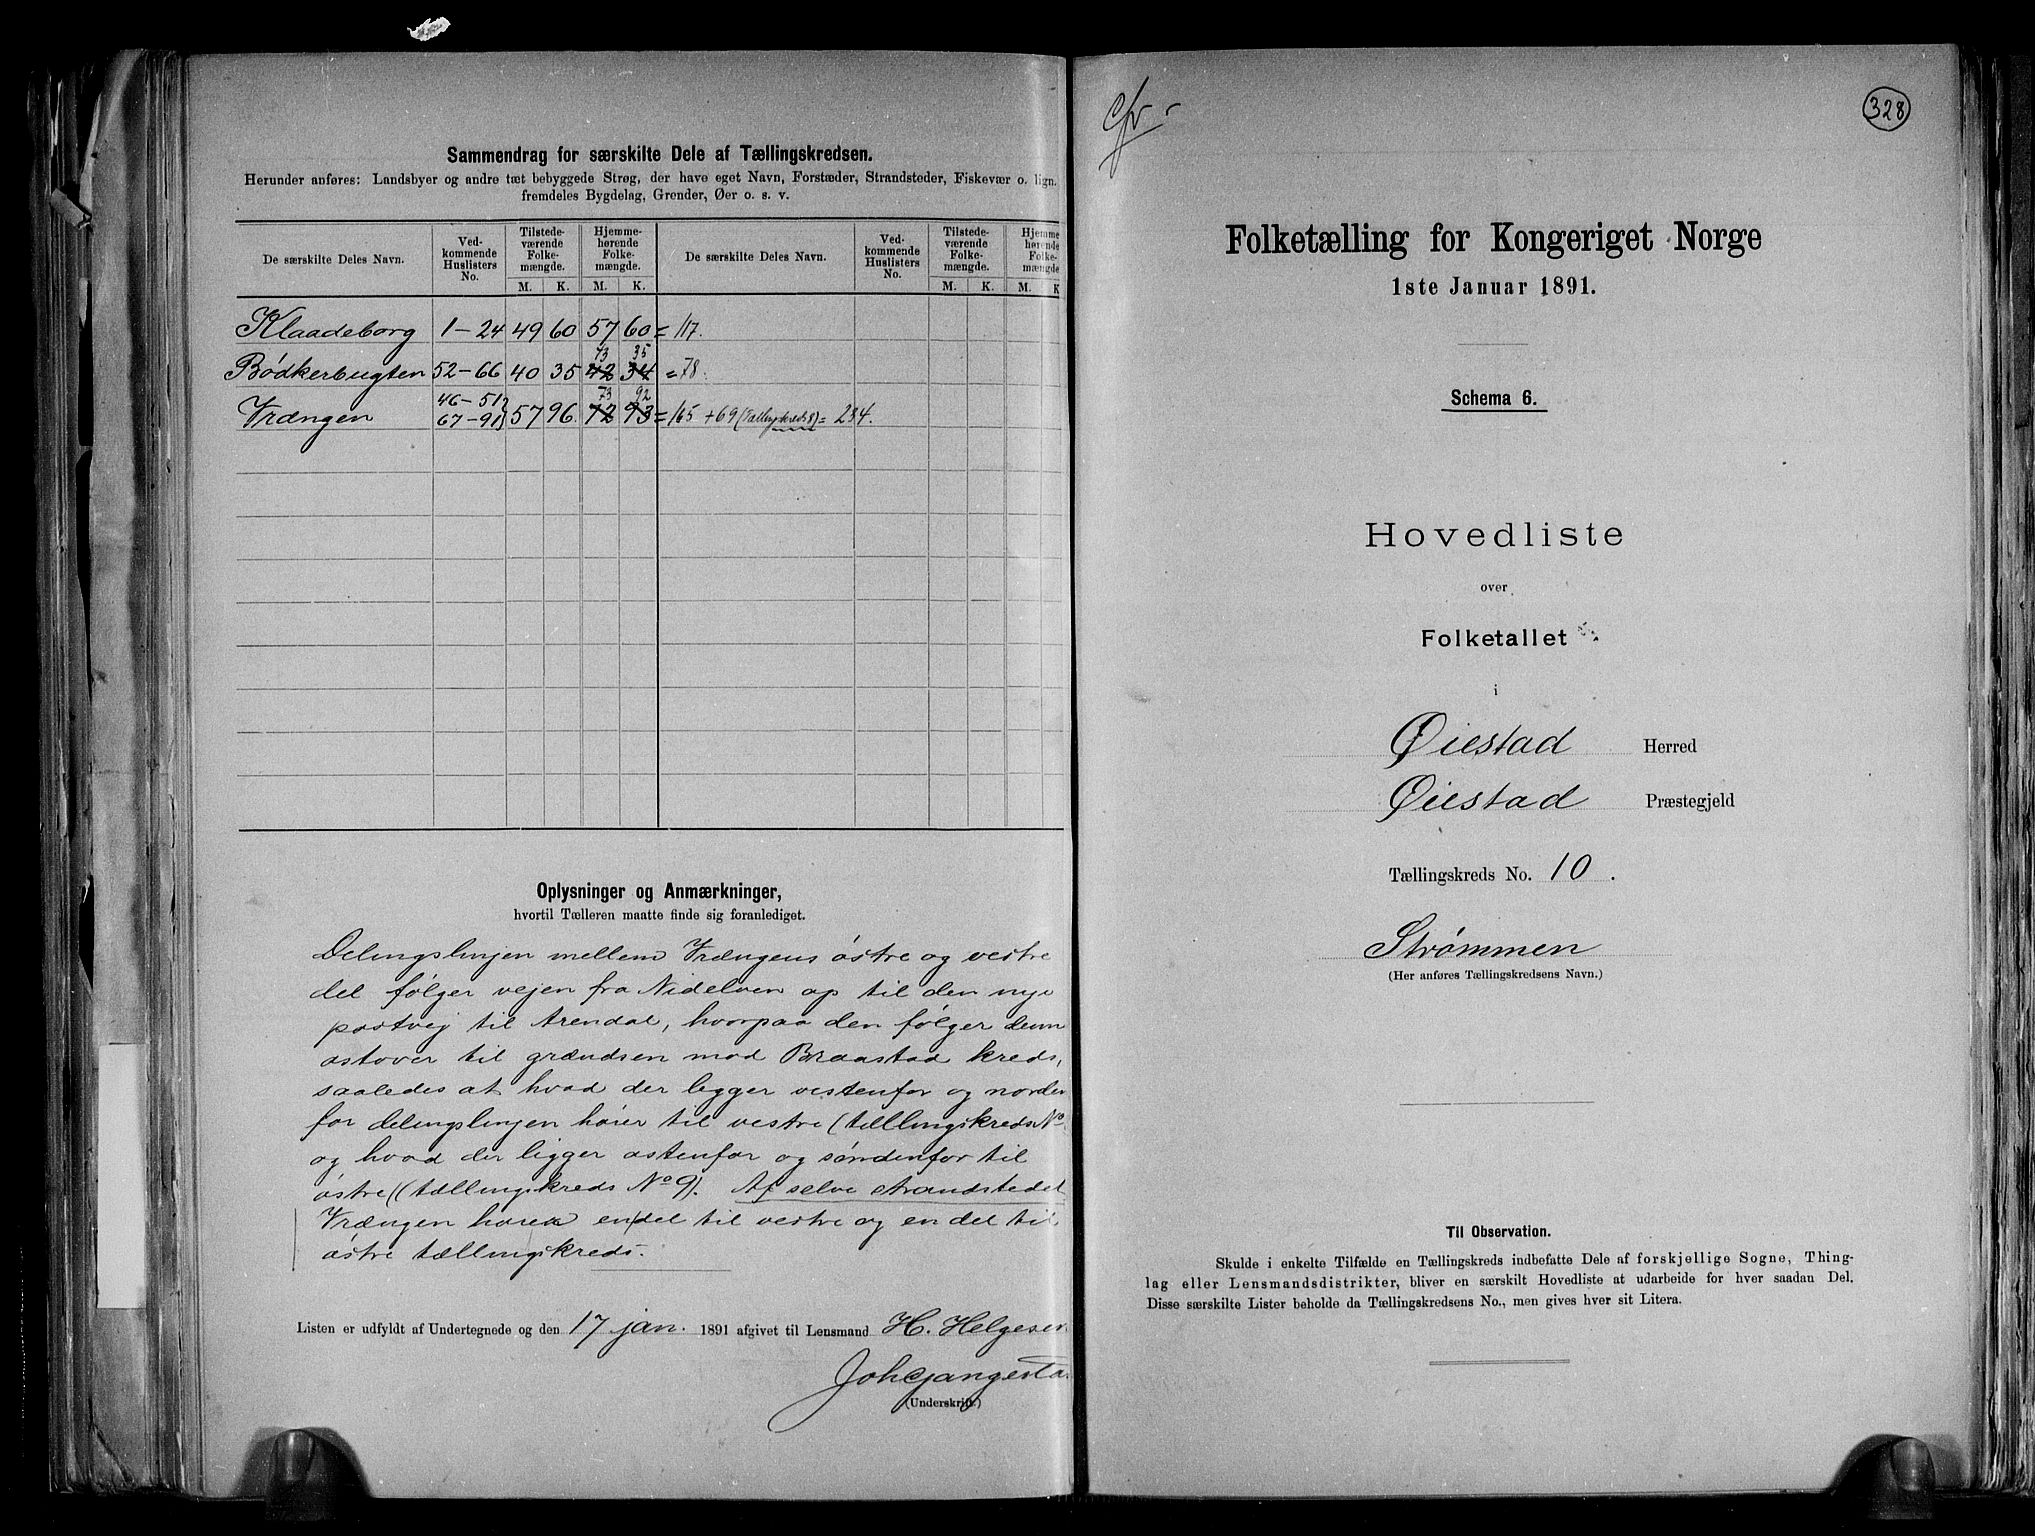 Sammendrag for særskilte Dele af Tællingskredsen.
Herunder anføres: Landsbyer og andre tæt bebyggede Strøg, der have eget Navn, Forstæder, Strandsteder, Fiskevær o. lign.
fremdeles Bygdelag, Grender, Øer o. s. v.
De særskilte Deles Navn. Vedkommende Huslisters No. Tilstedeværende Folkemængde. Hjemmehørende Folkemængde. De særskilte Deles Navn. Vedkommende Huslisters No. Tilstedeværende Folkemængde. Hjemmehørende Folkemængde
M. K. M. K. M. K. M. K
Klaadeborg 1-24 49 60 57 60 = 117.
73 35
Bødkerbugten 52-66 40 35 42 34 = 78.
46-51 73 92
Vrængen 67-91 57 96 72 93 = 165 + 69 (Tællingskreds 8) = 234.
Oplysninger og Anmærkninger,
hvortil Tælleren maatte finde sig foranlediget.
Delingslinjen mellem Vrængens østre og vestre
del følger vejen fra Nidelven op til den nye
postvej til Arendal, hvorpaa den følger denn
østover til grændsen mod Braastad kreds,
saaledes at hvad der ligger vestenfor og norden
for delingslinjen hører til vestre (tællingskreds No
og hvad der ligger østenfor og søndenfor til
østre (tællingskreds No 9). Af selve strandstedet
Vrængen hører endel til vestre og en del til
østre tællingskreds.
Listen er udfyldt af Undertegnede og den 17 jan. 1891 afgivet til Lensmand H. Helgesen
(Underskrift.)
cfr.
328
Folketælling for Kongeriget Norge
1ste Januar 1891.
Schema 6.
Hovedliste
over
Folketallet
i
Øiestad Herred
Øiestad Præstegjeld
Tællingskreds No. 10.
Strømmen
(Her anføres Tællingskredsens Navn.)
Til Observation.
Skulde i enkelte Tilfælde en Tællingskreds indbefatte Dele af forskjellige Sogne, Thing-
lag eller Lensmandsdistrikter, bliver en særskilt Hovedliste at udarbeide for hver saadan Del.
Disse særskilte Lister beholde da Tællingskredsens No., men gives hver sit Litera.